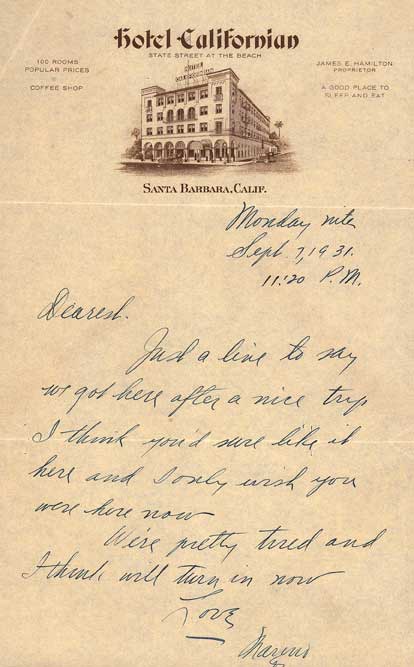 Hotel Californian
STATE STREET AT THE BEACH
100 ROOMS
POPULAR PRICES
COFFEE SHOP
JAMES E. HAMILTON
PROPRIETOR
A GOOD PLACE TO
SLEEP AND EAT
HOTEL
CALIFORNIAN
SANTA BARBARA, CALIF.
Monday nite
Sept. 7, 1931.
11:20 P.M.
Dearest.
Just a line to say
we got here after a nice trip
I think you'd sure like it
here and I only wish you
were here now
We're pretty tired and
I think will turn in now
Love